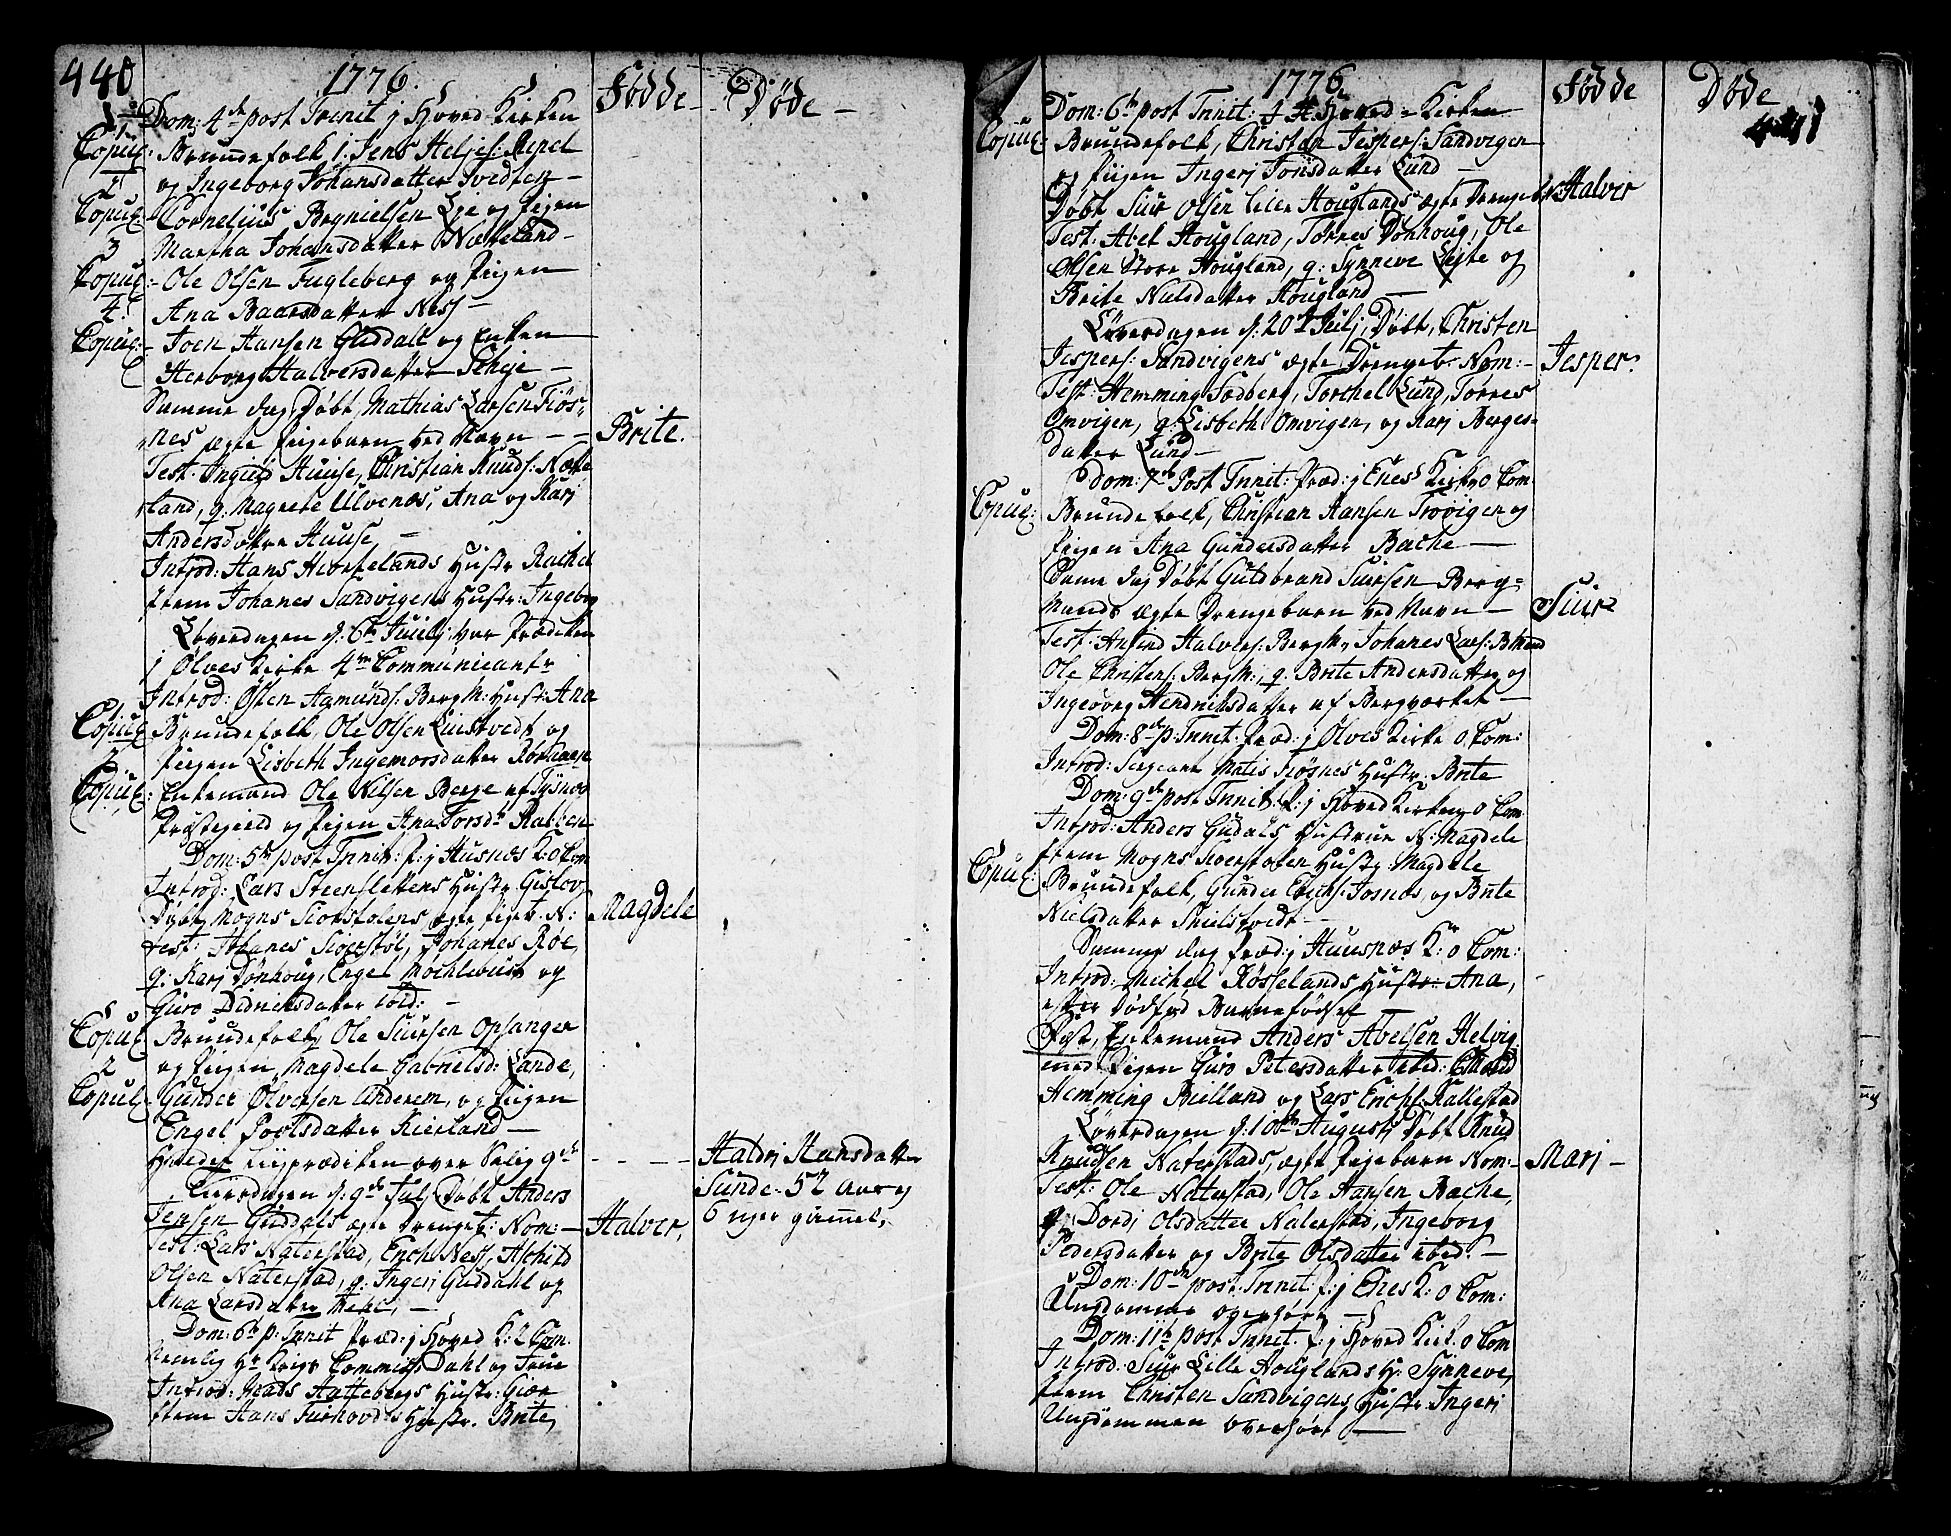 440
1776.
Fødde
Døde
Dom: 4de post Trinit j Hoved Kirken
1
Copul: Bruudefolk 1. Jens Heljes: Repel
og Ingeborg Johansdatter Tvedten
2
Copul: Cornelius Brynielsen Lye og Pigen
Martha Johansdatter Nætteland
3
Copul: Ole Olsen Fugleberg og Pigen
Ana Baarsdatter Nesj
4
Copul: Joen Hansen Guddalt og Enken
Herborg Halversdatter Scheje
Samme dag Døbt, Mathias Larsen Fiøs-
nes ægte Pigebarn ved Navn Brite.
Test. Huuse, Christian Knuds: Nætte
land, q. Magrete Ulvenæs, Ana og Kari
Andersdøttre Huuse,
Introd: Hans Hustr Rachel
item Johanes Sandvigens Hustr: Ingeborg
Løverdagen d: 6te Juilj var Prædiken
j Ølves Kirke 4re Communicantr
Introd: Østen Aamunds: Bergm: Hustr: Ana
Copul: Bruudefolk, Ole Olsen Liustvedt og
Pigen Lisbeth Ingemorsdatter
Copul: Enkemand Ole Nilsen Berge af Tysnes
Præstegield og Pigen Ana Torsdtr
Dom: 5te post Trinit: P: j Husnæs K: 0 Com
Introd: Lars Steenslettens Hustr: Gislov
Døbt Mogns Sioestolens ægte Pigeb: N: Magdele
Test: Johanes Sioestøl, Johanes Røe,
q: Kari Dønhoug, Engel og
Guro Didricksdatter
Copul Bruudefolk, Ole Siursen Opsanger
og Pigen Magdele Gabrielsd: Lande,
2
Copul: Gunder Ølversen Anderem, og Pigen
Engel Poulsdatter Kierland
Holdet Liigprædiken over Salig Haldri Hansdatter
Sunde 52 aar og
6 uger gammel.
Tiersdagen d. 9de Julj Døbt Anders
Jensen Guddals ægte Drengeb: Nom: Halver,
Test: Lars Naterstad, Erich Nesj, Achild
Olsen Naterstad, q: Ingeri Guddahl og
Ana Larsdatter
Dom: 6te p: Trinit Præd: j Hoved K: 2 Com.
Nemlig Hr Krigs Commis: Dahl og Frue
Introd: Mads Hattebergs Hustr: Giøe
item Hans Hustr. Brite,
1776
Fødde
Døde
441
Dom: 6te post Trinit: j Hoved-Kirken
Copul: Bruudefolk, Christen Jespers: Sandvigen
og Pigen Ingeri Tonsdatter Lund
Døbt Siur Olsen lille Houglands ægte Drengeb: N: Halver
Test. Abel Hougland, Torres Dønhoug, Ole
Olsen Store Hougland, q: Synneve Lejte og
Brite Nielsdatter Hougland
Løverdagen d: 20de Julj, Døbt, Christen
Jespers: Sandvigens ægte Drengeb: Nom: Jesper.
Test: Hemming Sodberg, Torchel Lund, Torres
Omvigen, q: Lisbeth Omvigen, og Kari Berges-
datter Lund
Dom: 7de Post Trinit: Præd: j Enes Kirke 0 Com
Copul: Bruudefolk, Christian Hansen Trøvigen og
Pigen Ana Gundersdatter Bache
Same dag Døbt Guldbrand Siursen Berg-
mands ægte Drengebarn ved Navn Siur
Test. Halvers: Bergm, Johanes Lars:
Ole Christens: Bergm:, q: Brite Andersdatter og
Ingeborg Hendriksdatter af Bergverket
Dom: 8de p: Trinit: Præd: j Ølves Kirke 0 Com:
Introd: Sergeant Matis Fiøsnes Hustr: Brite
Dom: 9de post Trinit: P: j Hoved Kirken 0 Com
Introd: Anders Gudals Hustrue N: Magdele
item Mogns Sioestolen Hustr: Magdele
Copul: Bruudefolk, Gunder Erichs: Fosnæs, og Brite
Nielsdatter
Samme dag Præd: j Huusnæs K: 0 Com:
Introd: Michel Røsselands Hustr: Ana,
efter Dødfød Barnefødsel
Fæst, Enkemand Anders Abelsen Helvig
med Pigen Guro Petersdatter ibid:
Hemming Bielland og Lars Erichs: Kallestad
Løverdagen d: 10de Augusti Døbt Knud
Knudsen Naterstads, ægte Pigebarn Nom: Mari
Test: Ole Naterstad, Ole Hansen Bache,
q: Dordi Olsdatter Naterstad, Ingeborg
Pedersdatter og Brite Olsdatter ibid:
Dom: 10de post Trinit: P: j Enes K: 0 Com:
Ungdommen overhørt
Dom: 11te post Trinit. P: j Hoved Kirk. 0 Com
Introd: Siur Lille Houglands H: Synneve,
item Christen Sandvigens Hustr Ingeri
Ungdommen overhørt